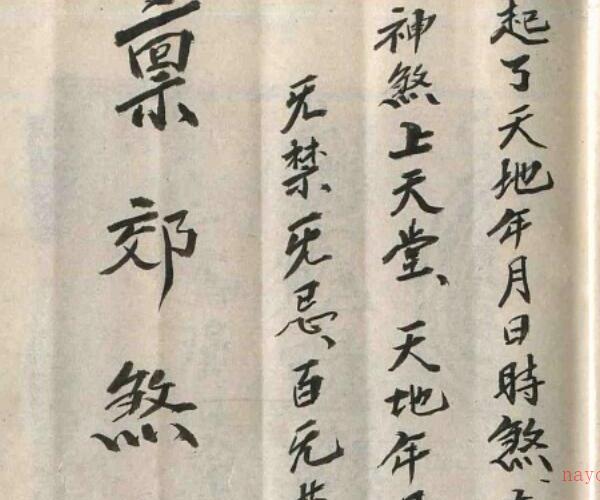 起了天地年月日時煞、
神煞上天堂、天地年
无禁无忌、百无
禀郊煞
nayo